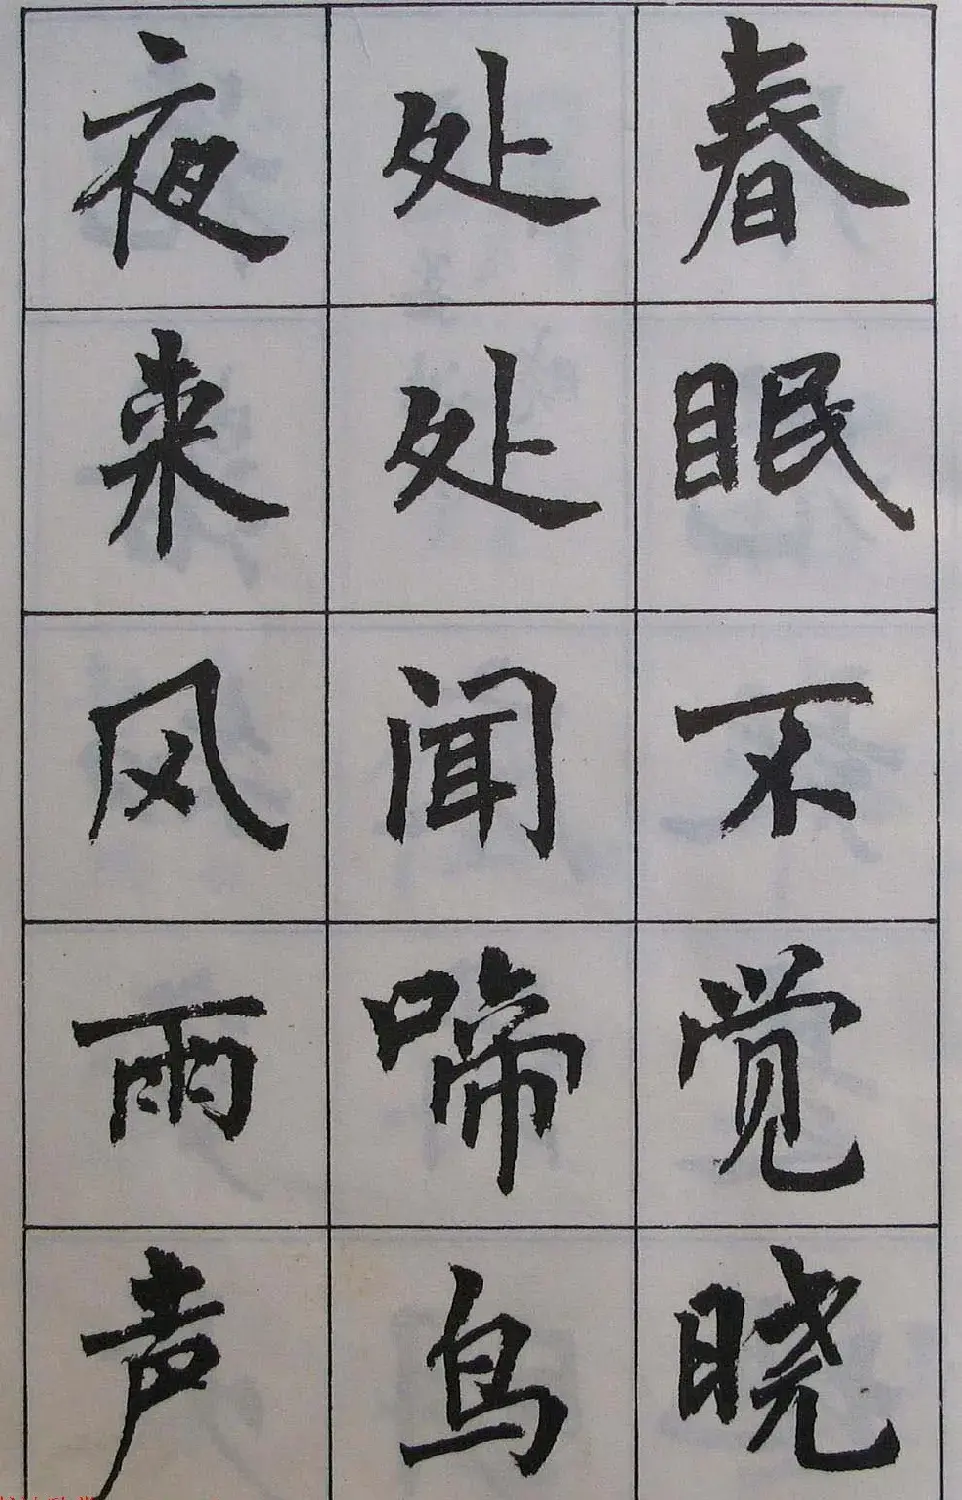 春眠不觉晓
处处闻啼鸟
夜来风雨声